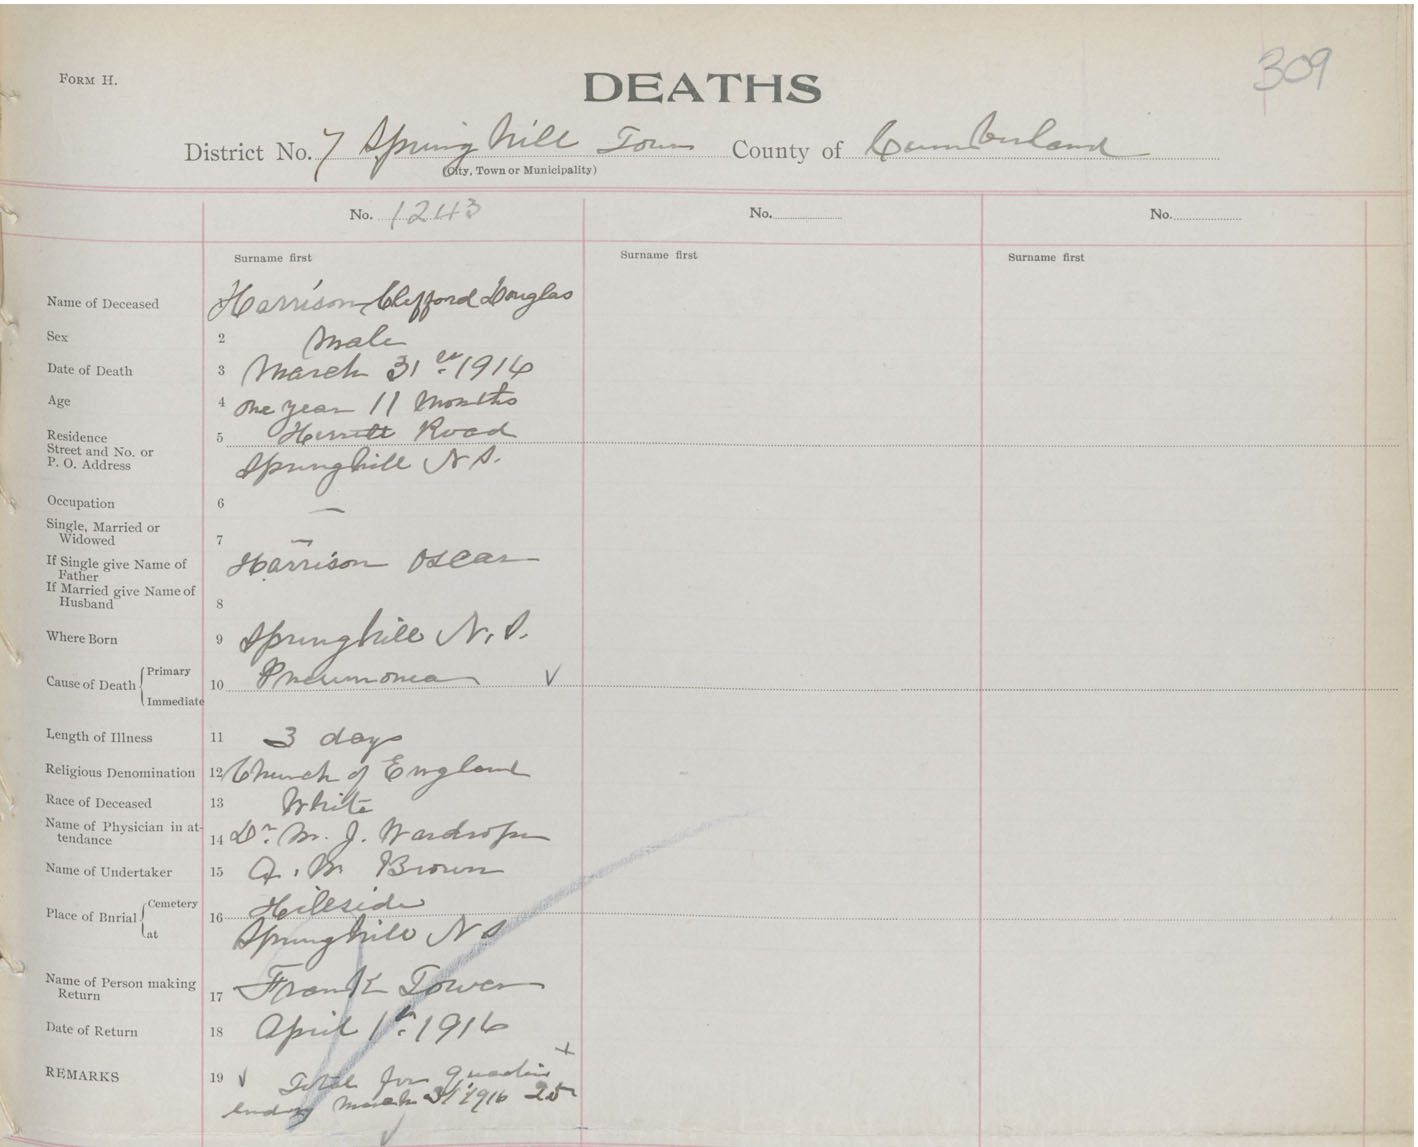 309
FORM H.
DEATHS
District No. 7 Spring hill Town County of Cumberland
(City, Town or Municipality)
No. 1243 No. No.
Surname first Surname first Surname first
Name of Deceased Harrison Clifford Douglas
Sex 2 Male
Date of Death 3 March 31st 1916
Age 4 One year 11 Months
Residence 5 Herrett Road
Street and No. or
P. O. Address Springhill N S.
Occupation 6 —
Single, Married or
Widowed 7 —
If Single give Name of Harrison Oscar
Father
If Married give Name of
Husband 8
Where Born 9 Springhill N. S.
Cause of Death Primary 10 Pneumonia
Immediate
Length of Illness 11 3 days
Religious Denomination 12 Church of England
Race of Deceased 13 White
Name of Physician in at-
tendance 14 Dr. M. J. Wardrope
Name of Undertaker 15 A. M Brown
Place of Bnrial Cemetery 16 Hillside
at Springhill N S
Name of Person making
Return 17 Frank Tower
Date of Return 18 April 1st 1916
REMARKS 19 Total for quarter
ending March 31 1916 25